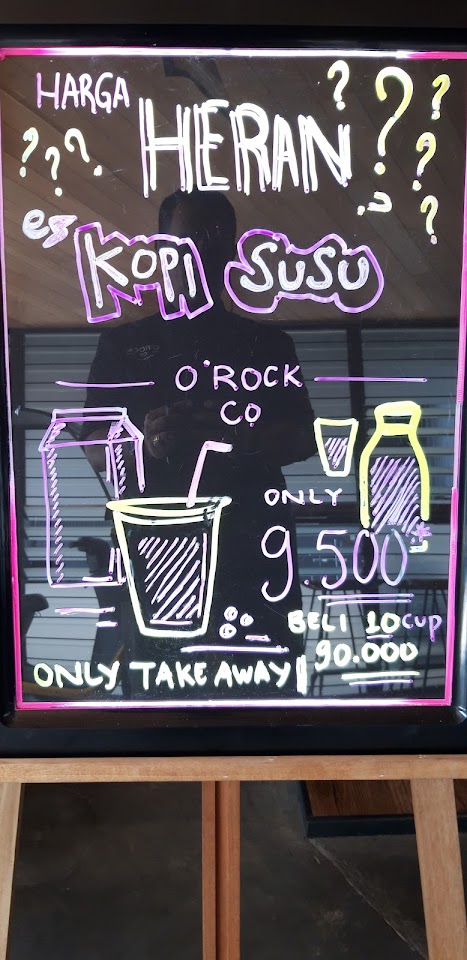 HARGA
HERAN
???????
es KOPI SUSU
O'ROCK
CO
ONLY
9.500
BELI 10 CUP
90.000
ONLY TAKE AWAY!